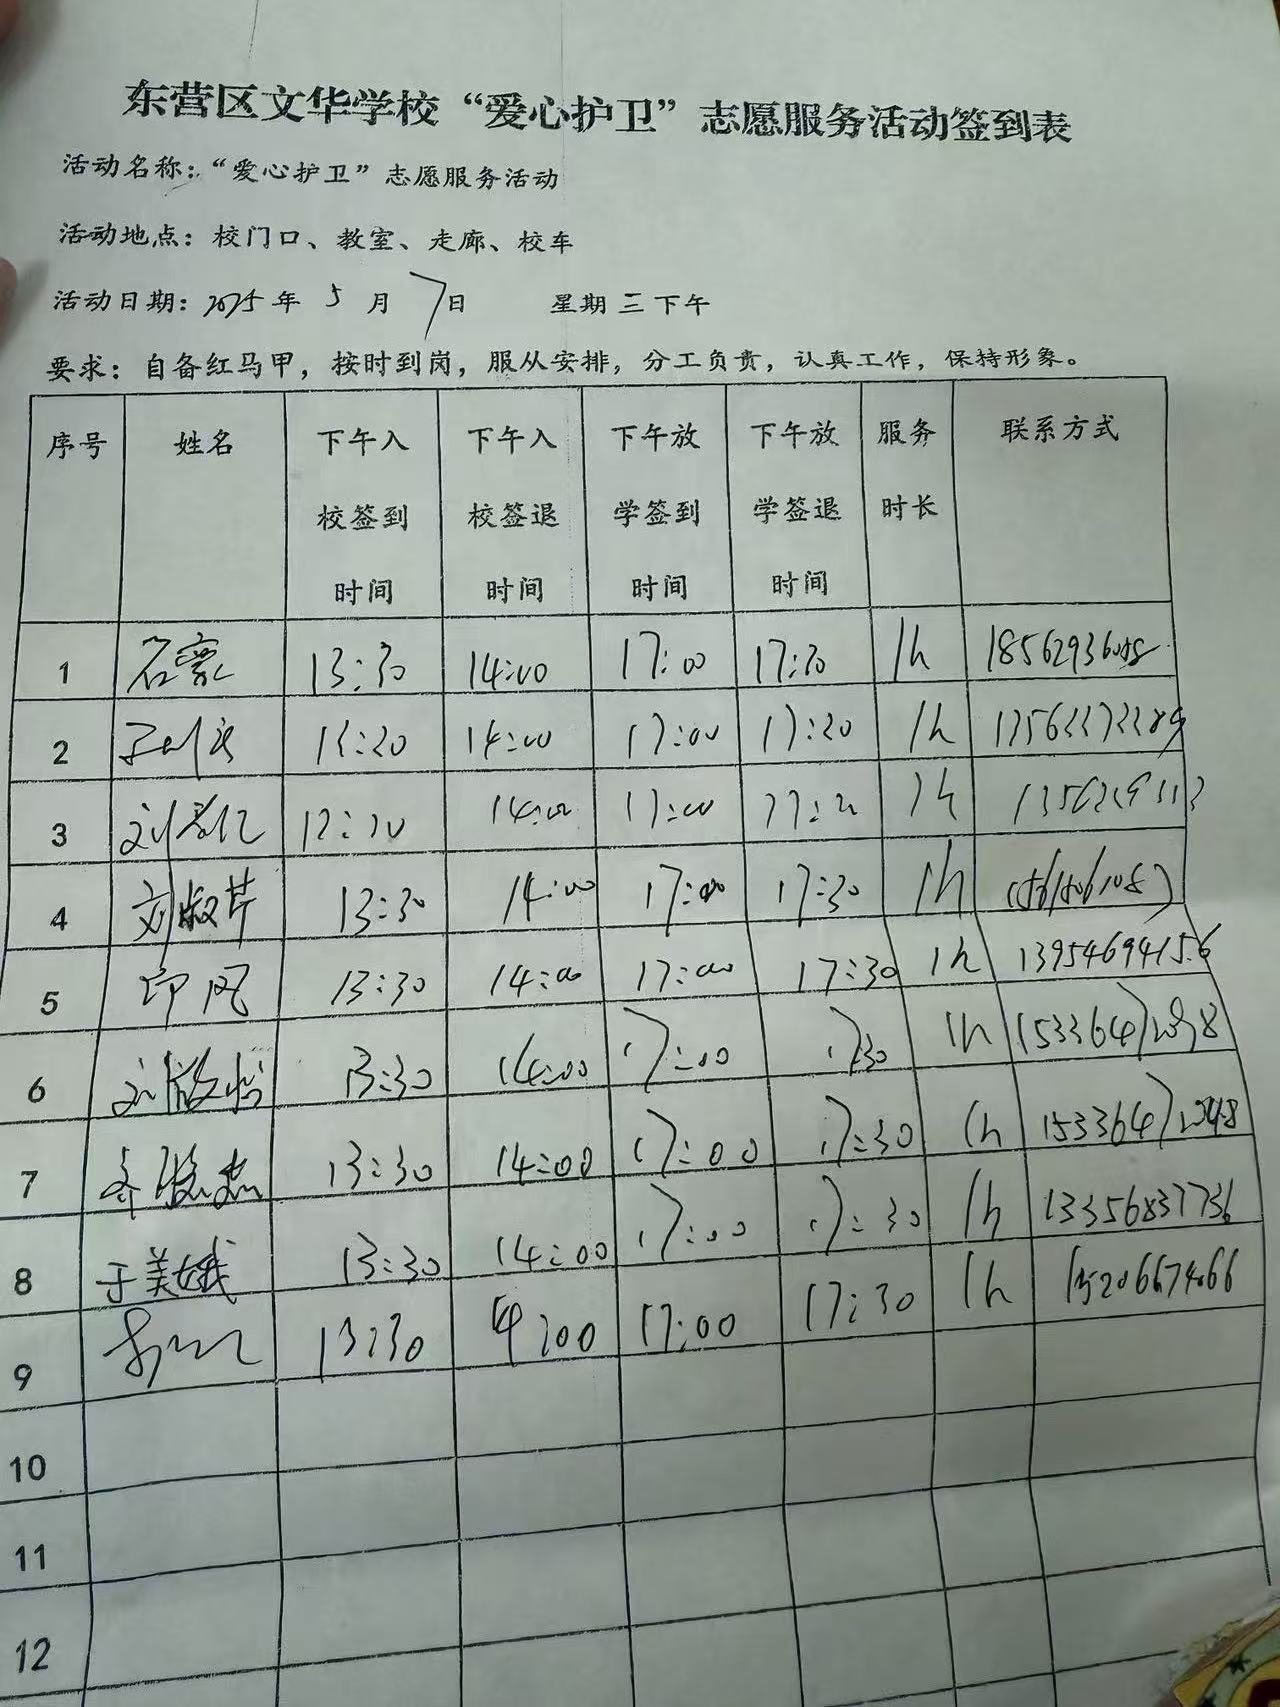 东营区文华学校“爱心护卫”志愿服务活动签到表
活动名称：“爱心护卫”志愿服务活动
活动地点：校门口、教室、走廊、校车
活动日期：2025年 5月 7日 星期三下午
要求：自备红马甲，按时到岗，服从安排，分工负责，认真工作，保持形象。
序号 姓名 下午入校签到时间 下午入校签退时间 下午放学签到时间 下午放学签退时间 服务时长 联系方式
1 13:30 14:00 17:00 17:30 1h
2 14:00 17:00 1h
3 14:00 17:00 1h
4 刘淑芹 13:30 14:00 17:00 17:30 1h
5 印风 13:30 14:00 17:00 17:30 1h 13954694156
6 13:30 14:00 17:00 17:30 1h
7 13:30 14:00 17:00 17:30 1h
8 于美娥 13:30 14:00 17:00 17:30 1h 13356837736
9 13:30 14:00 17:00 17:30 1h 15206674066
10
11
12